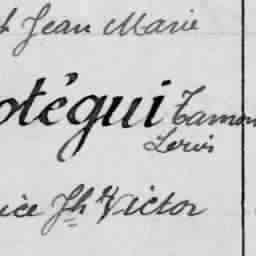 t Jean Marie
otégui Tamon
Louis
ice Jh Victor